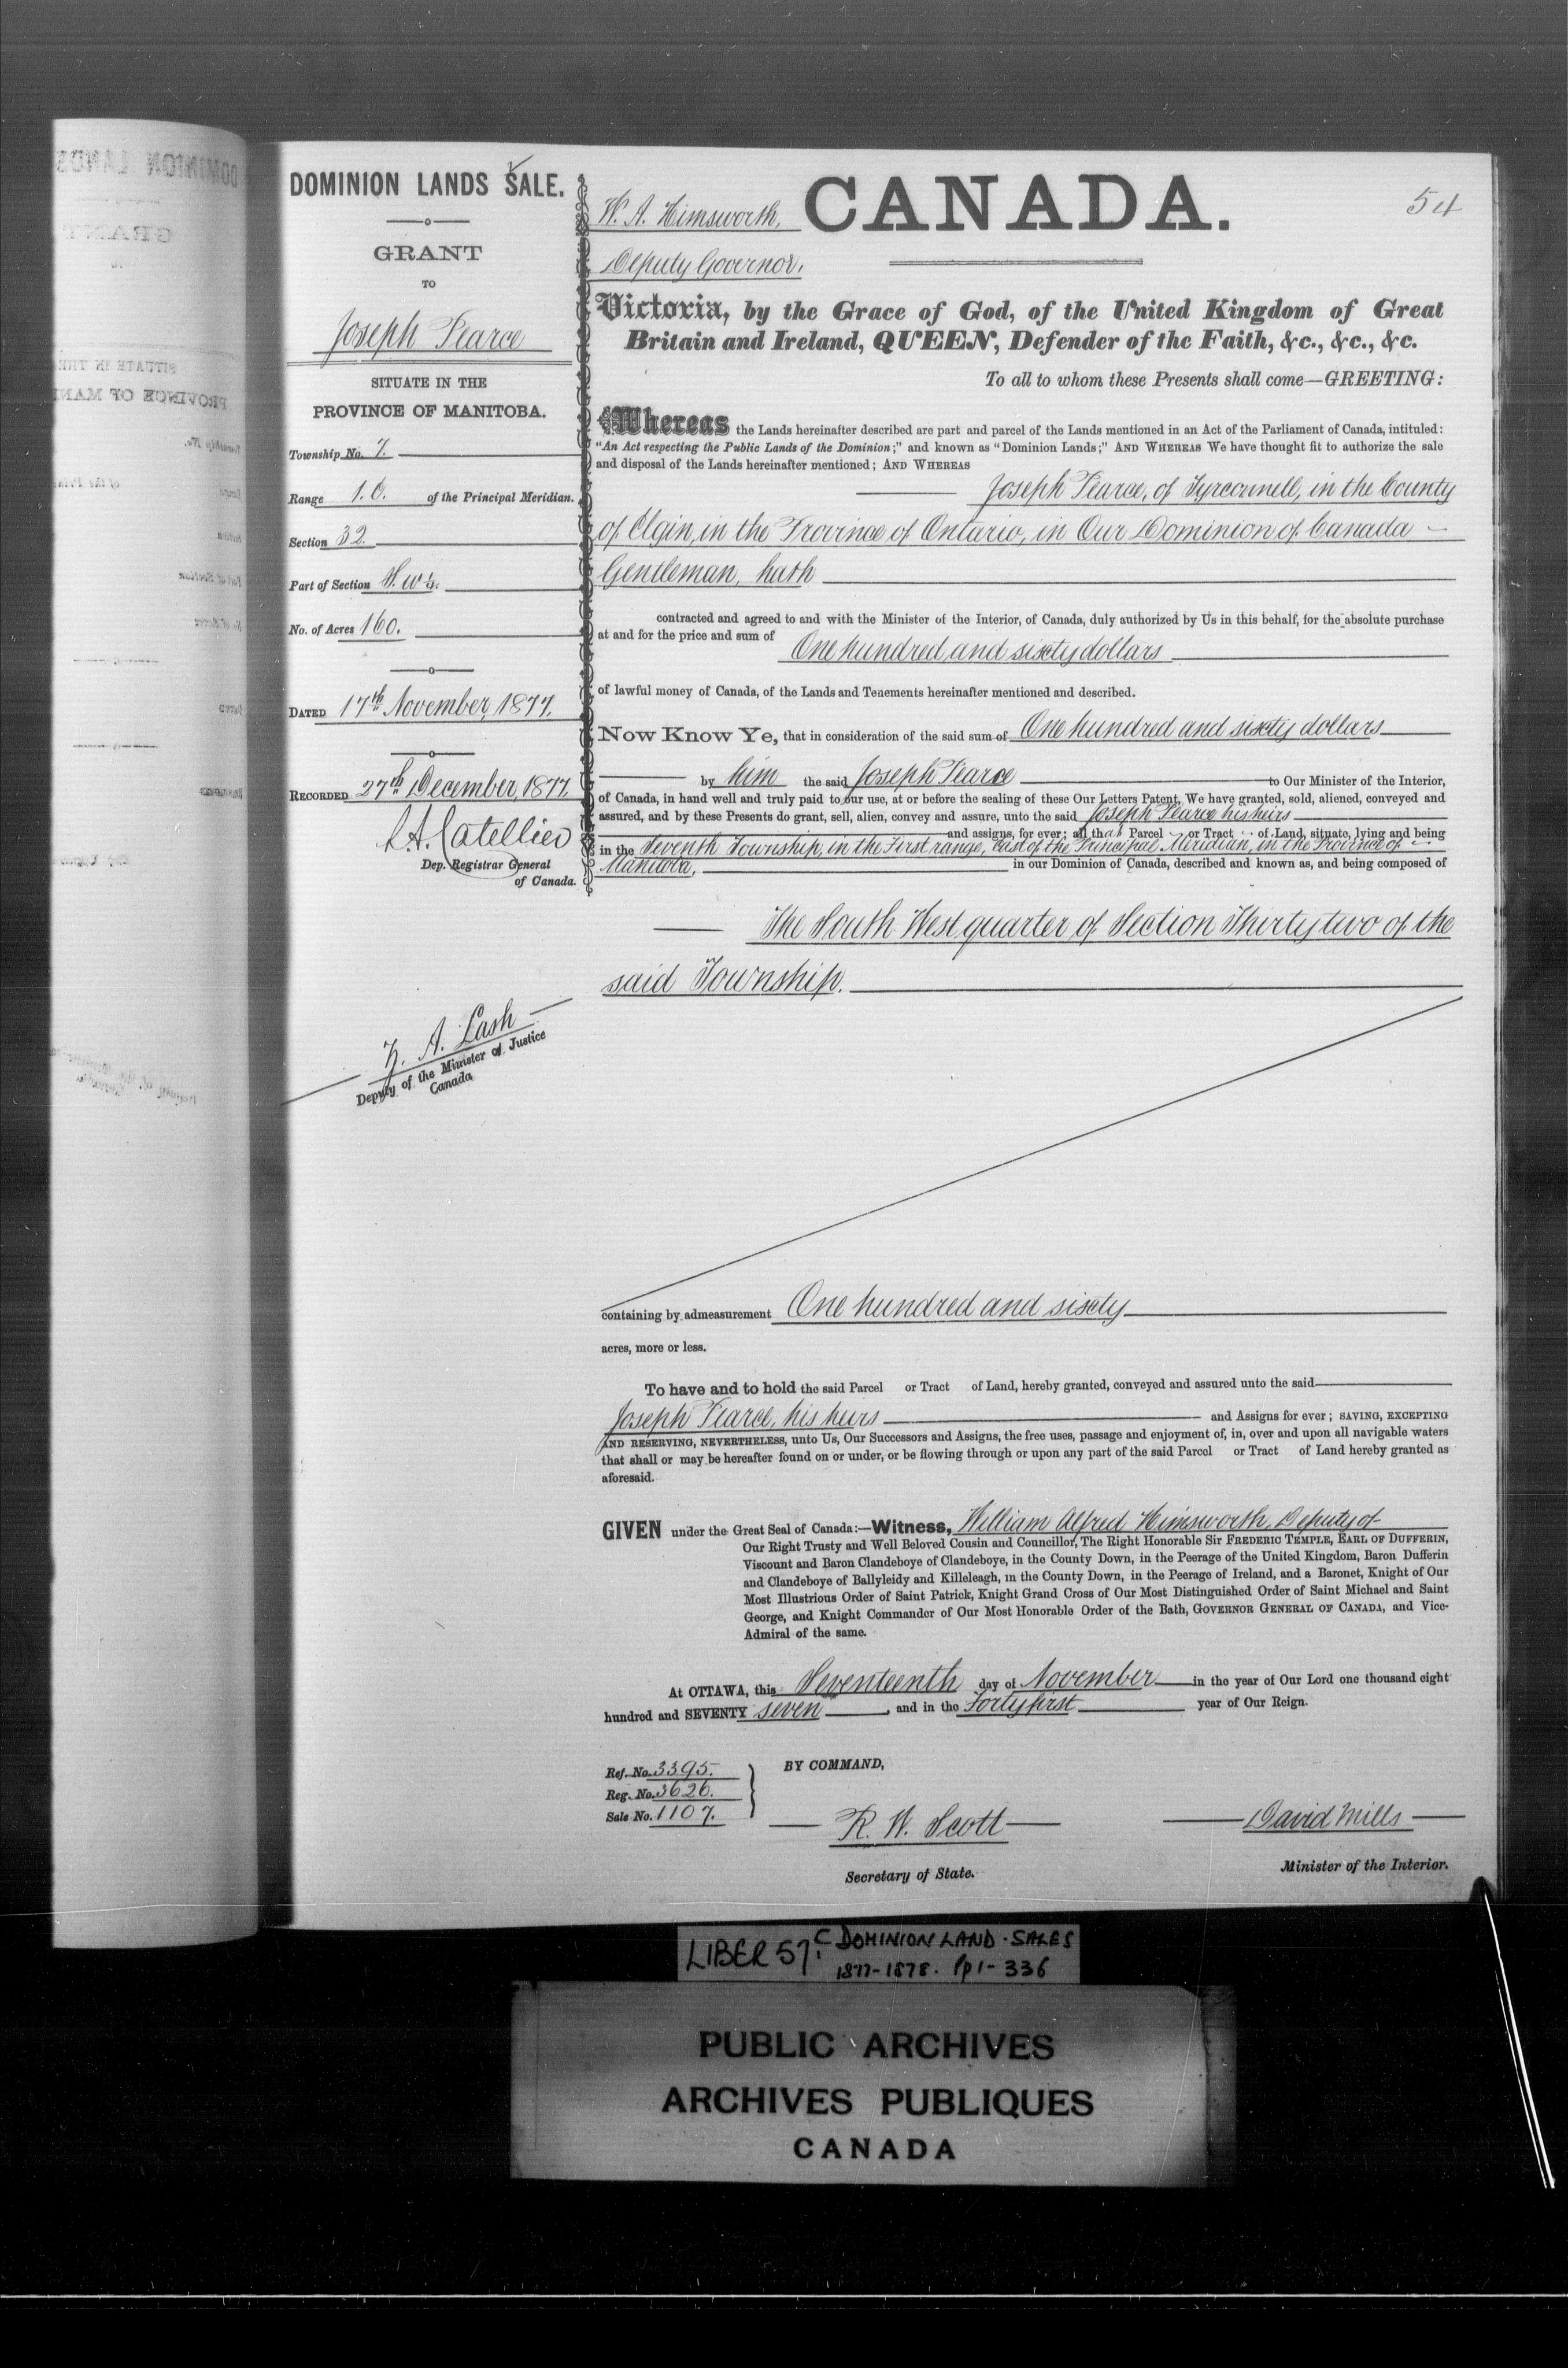 DOMINION LANDS SALE.
GRANT
TO
Joseph Pearce
SITUATE IN THE
PROVINCE OF MANITOBA.
Township No. 7.
Range 1. E. of the Principal Meridian.
Section 32.
Part of Section S. W ¼.
No. of Acres 160.
DATED 17th November, 1877.
RECORDED 27th December, 1877.
L. A. Catellier
Dep. Registrar General
of Canada.
Z. A. Lash
Deputy of the Minister of Justice
Canada
54
W. A. Himsworth,
Deputy Governor.
CANADA.
Victoria, by the Grace of God, of the United Kingdom of Great
Britain and Ireland, QUEEN, Defender of the Faith, &c., &c., &c.
To all to whom these Presents shall come—GREETING:
Whereas the Lands hereinafter described are part and parcel of the Lands mentioned in an Act of the Parliament of Canada, intituled:
"An Act respecting the Public Lands of the Dominion;" and known as "Dominion Lands;" AND WHEREAS We have thought fit to authorize the sale
and disposal of the Lands hereinafter mentioned; AND WHEREAS
Joseph Pearce, of Tyrconnell, in the County
of Elgin, in the Province of Ontario, in Our Dominion of Canada —
Gentleman, hath
contracted and agreed to and with the Minister of the Interior, of Canada, duly authorized by Us in this behalf, for the absolute purchase
at and for the price and sum of One hundred and sixty dollars
of lawful money of Canada, of the Lands and Tenements hereinafter mentioned and described.
Now Know Ye, that in consideration of the said sum of One hundred and sixty dollars
by him the said Joseph Pearce to Our Minister of the Interior,
of Canada, in hand well and truly paid to our use, at or before the sealing of these Our Letters Patent, We have granted, sold, aliened, conveyed and
assured, and by these Presents do grant, sell, alien, convey and assure, unto the said Joseph Pearce his heirs
and assigns, for ever; all that Parcel or Tract of Land, situate, lying and being
in the Seventh Township, in the First range, East of the Principal Meridian, in the Province of
Manitoba, in our Dominion of Canada, described and known as, and being composed of
The South West quarter of Section Thirty two of the
said Township.
containing by admeasurement One hundred and sixty
acres, more or less.
To have and to hold the said Parcel or Tract of Land, hereby granted, conveyed and assured unto the said
Joseph Pearce, his heirs and Assigns for ever; SAVING, EXCEPTING
AND RESERVING, NEVERTHELESS, unto Us, Our Successors and Assigns, the free uses, passage and enjoyment of, in, over and upon all navigable waters
that shall or may be hereafter found on or under, or be flowing through or upon any part of the said Parcel or Tract of Land hereby granted as
aforesaid.
GIVEN under the Great Seal of Canada:—Witness, William Alfred Himsworth, Deputy of
Our Right Trusty and Well Beloved Cousin and Councillor, The Right Honorable Sir FREDERIC TEMPLE, EARL OF DUFFERIN,
Viscount and Baron Clandeboye of Clandeboye, in the County Down, in the Peerage of the United Kingdom, Baron Dufferin
and Clandeboye of Ballyleidy and Killeleagh, in the County Down, in the Peerage of Ireland, and a Baronet, Knight of Our
Most Illustrious Order of Saint Patrick, Knight Grand Cross of Our Most Distinguished Order of Saint Michael and Saint
George, and Knight Commander of Our Most Honorable Order of the Bath, GOVERNOR GENERAL OF CANADA, and Vice-
Admiral of the same.
At OTTAWA, this Seventeenth day of November in the year of Our Lord one thousand eight
hundred and SEVENTY seven, and in the Forty first year of Our Reign.
Ref. No. 3395.
Reg. No. 3626.
Sale No. 1107.
BY COMMAND,
R. W. Scott
Secretary of State.
David Mills
Minister of the Interior.
LIBER 57C. DOMINION LAND SALES
1877-1878. Pp 1-336
PUBLIC ARCHIVES
ARCHIVES PUBLIQUES
CANADA